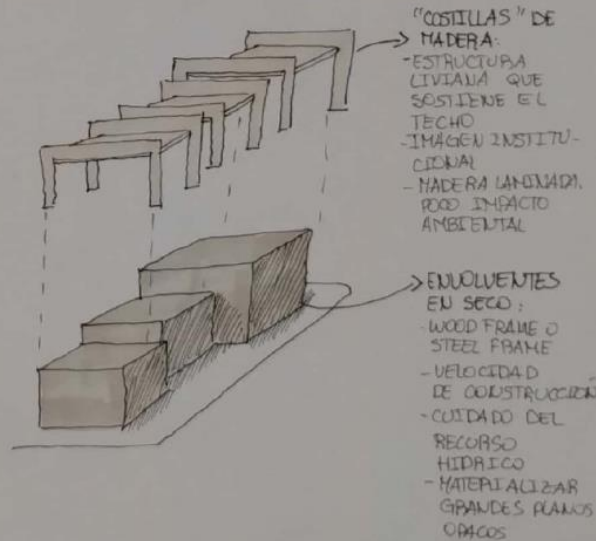 "COSTILLAS" DE
MADERA:
-ESTRUCTURA
LIVIANA QUE
SOSTIENE EL
TECHO
-IMAGEN INSTITU-
CIONAL
- MADERA LAMINADA.
POCO IMPACTO
AMBIENTAL
ENVOLVENTES
EN SECO:
- WOOD FRAME O
STEEL FRAME
- VELOCIDAD
DE CONSTRUCCIÓN
- CUIDADO DEL
RECURSO
HIDRICO
- MATERIALIZAR
GRANDES PLANOS
OPACOS